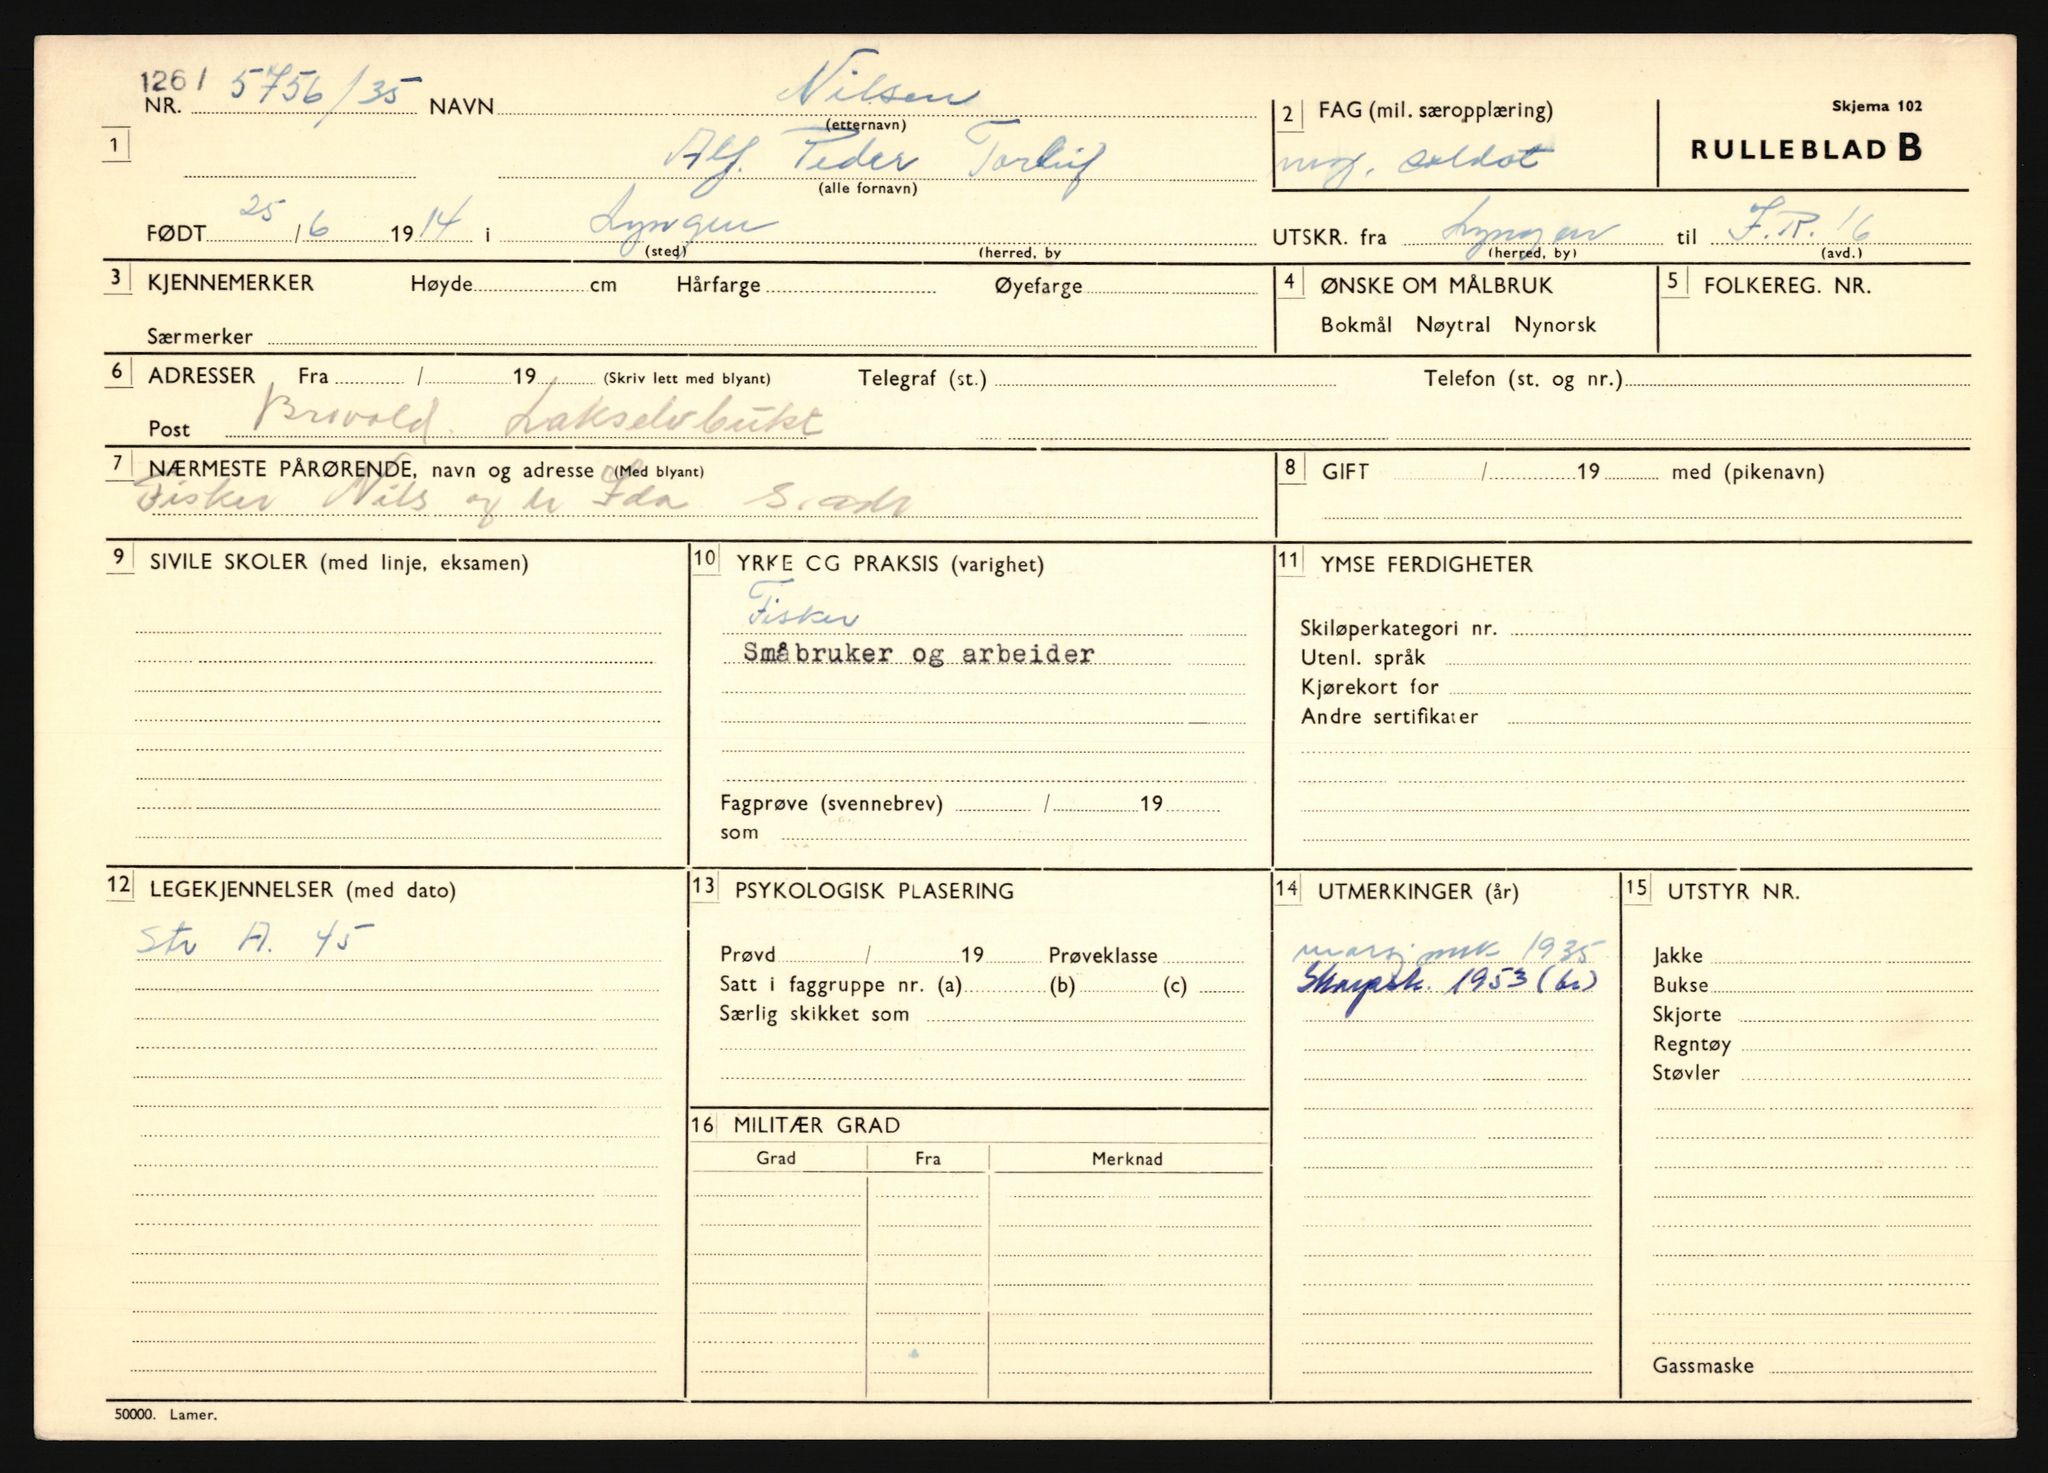 1261 5756/35 Nilsen
NR. NAVN (etternavn) 2 FAG (mil. særopplæring) Skjema 102
1 Alf. Peder Torleif soldat RULLEBLAD B
(alle fornavn)
FØDT 25/6 1914 i Lyngen UTSKR. fra Lyngen til F.R. 16
(sted) (herred, by (herred, by) (avd.)
3 KJENNEMERKER Høyde cm Hårfarge Øyefarge 4 ØNSKE OM MÅLBRUK 5 FOLKEREG. NR.
Særmerker Bokmål Nøytral Nynorsk
6 ADRESSER Fra / 19 (Skriv lett med blyant) Telegraf (st.) Telefon (st. og nr.)
Post Lakselvbukt
7 NÆRMESTE PÅRØRENDE, navn og adresse (Med blyant) 8 GIFT / 19 med (pikenavn)
Fisker Nils og hr Ida s. adr
9 SIVILE SKOLER (med linje, eksamen) 10 YRKE CG PRAKSIS (varighet) 11 YMSE FERDIGHETER
Fisker
Småbruker og arbeider
Skiløperkategori nr.
Utenl. språk
Kjørekort for
Andre sertifikater
Fagprøve (svennebrev) / 19
som
12 LEGEKJENNELSER (med dato) 13 PSYKOLOGISK PLASERING 14 UTMERKINGER (år) 15 UTSTYR NR.
Str A. 45
Prøvd / 19 Prøveklasse
Satt i faggruppe nr. (a) (b) (c)
Særlig skikket som
marsj mrk 1935
Skarpsk. 1953 (br)
Jakke
Bukse
Skjorte
Regntøy
Støvler
16 MILITÆR GRAD
Grad Fra Merknad
Gassmaske
50000. Lamer.